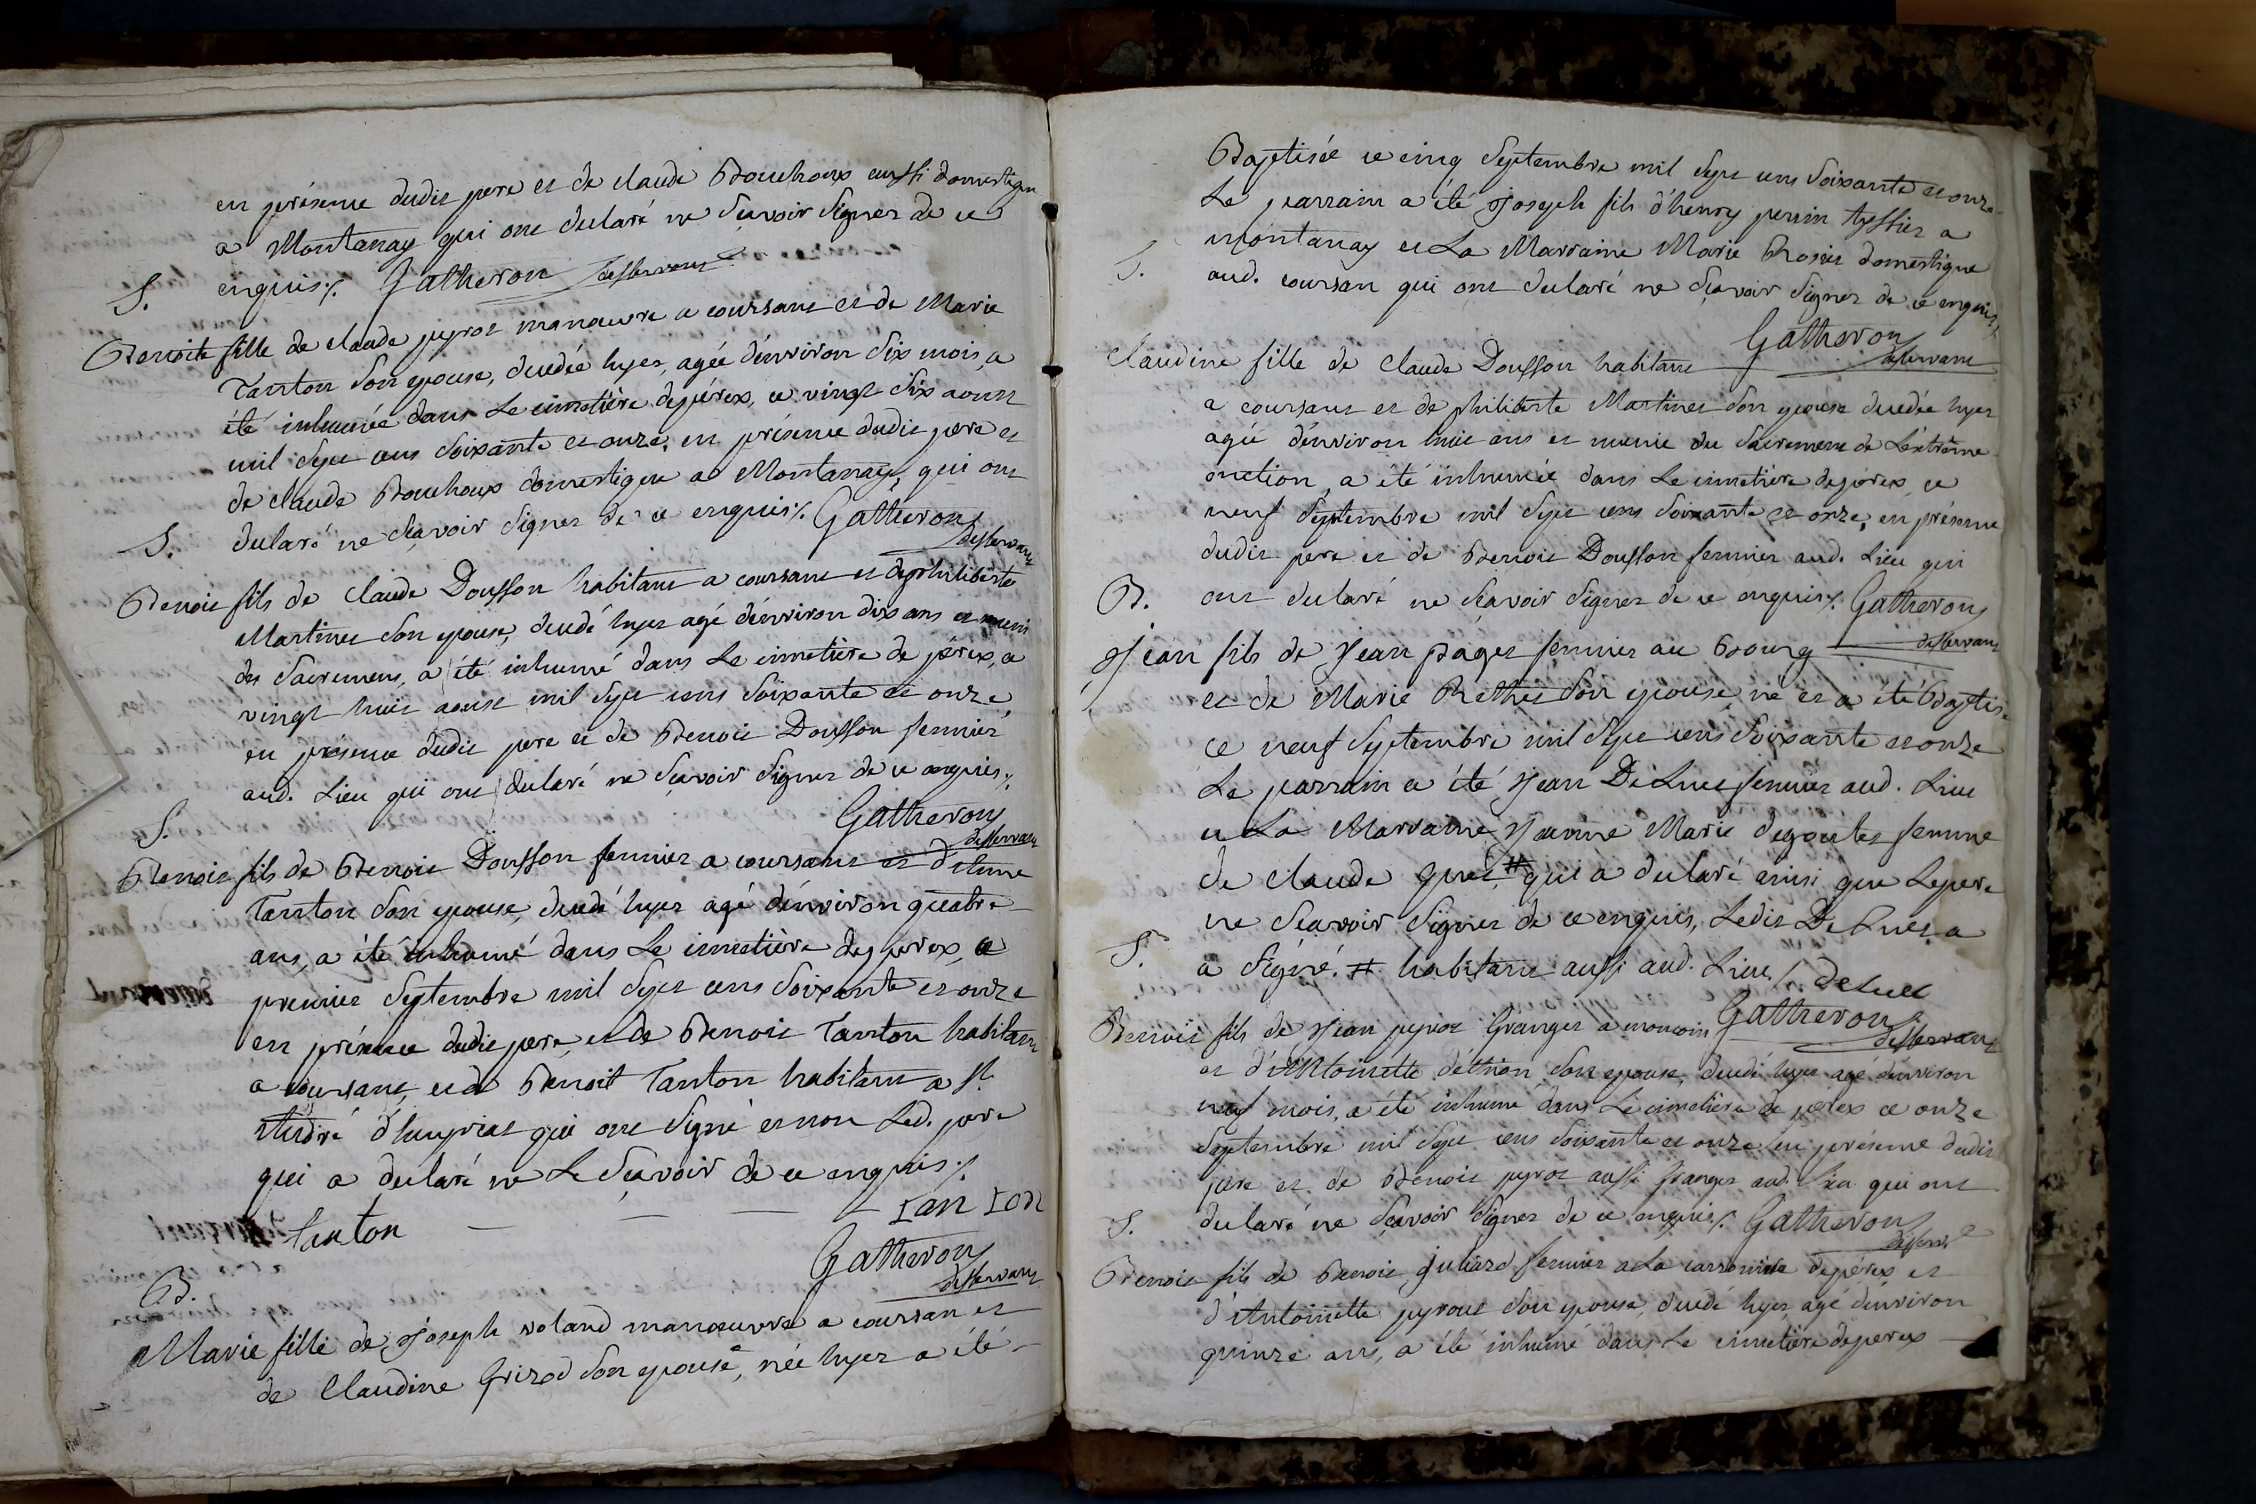 en présence dudit pere et de claude Bouchoux aussi domestique
a Montanay qui ont declaré ne sçavoir signer de ce
enquis ./. Gatheron desservant
S.
Benoite fille de claude pyrot manoeuvre a coursant et de Marie
Tanton son epouse, decedée hyer, agée d'environ six mois, a
été inhumée dans Le cimetière de pérex, ce vingt six aoust
mil sept cens soixante et onze, en présence dudit pere et
de claude Bouchoux domestique a Montanay, qui ont
declaré ne sçavoir signer de ce enquis ./. Gatheron
desservant
S.
Benoit fils de claude Dousson habitant a coursant et de philiberte
Martinet son epouse, decedé hyer agé d'environ dix ans et muni
des sacremens, a été inhumé dans Le cimetière de pérex, ce
vingt huit aoust mil sept cens soixante et onze,
en présence dudit pere et de Benoit Dousson fermier
aud. Lieu qui ont declaré ne sçavoir signer de ce enquis ./.
Gatheron
desservant
S.
Benoit fils de Benoit Dousson fermier a coursant et d'Anne
Tanton son epouse, decedé hyer agé d'environ quatre
ans, a été inhumé dans Le cimetière de perex, ce
premier septembre mil sept cens soixante et onze
en présence dudit pere, et de Benoit Tanton habitant
a coursant, et de Benoit Tanton habitant a St
André d'huyriat qui ont signé et non Led. pere
qui a declaré ne Le sçavoir de ce enquis ./.
Tanton — — — Tanton
Gatheron
desservant
B.
Marie fille de Joseph voland manoeuvre a coursan et
de Claudine Grizod son epouse, née hyer a été
Baptisée ce cinq septembre mil sept cens soixante et onze
Le parrain a été Joseph fils d'henry perrin tyssier a
montanay et La Marraine Marie Rosier domestique
aud. coursan qui ont declaré ne sçavoir signer de ce enquis ./.
Gatheron
desservant
S.
Claudine fille de claude Dousson habitant
a coursant et de philiberte Martinet son epouse decedée hyer
agée d'environ huit ans et munie du sacrement de L'extrême
onction, a été inhumée dans Le cimetière de pérex, ce
neuf septembre mil sept cens soixante et onze, en présence
dudit pere et de Benoit Dousson fermier aud. Lieu qui
ont declaré ne sçavoir signer de ce enquis ./. Gatheron
desservant
B.
Jean fils de Jean pager fermier au Bourg
et de Marie Rethy son epouse, né et a été Baptisé
ce neuf septembre mil sept cens soixante et onze
Le parrain a été Jean De Luce fermier aud. Lieu
et La Marraine Jeanne Marie degoutes femme
de claude # qui a declaré ainsi que Le pere
ne sçavoir signer de ce enquis, Ledit De Luce a
a signé. # habitant aussi aud. Lieu ./. deluce
Gatheron
desservant
S.
Benoit fils de Jean pyrot Granger a moncoin
et d'Antoinette déthion son epouse, decedé hyer agé d'environ
neuf mois, a été inhumé dans Le cimetière de perex ce onze
septembre mil sept cens soixante et onze en présence dudit
pere et de Benoit pyrot aussi Granger aud. Lieu qui ont
declaré ne sçavoir signer de ce enquis ./. Gatheron
desserv.
S.
Benoit fils de Benoit Juliard fermier a La carronnière de pérex et
d'Antoinette pyrout son epouse, decedé hyer agé d'environ
quinze ans, a été inhumé dans Le cimetière de perex